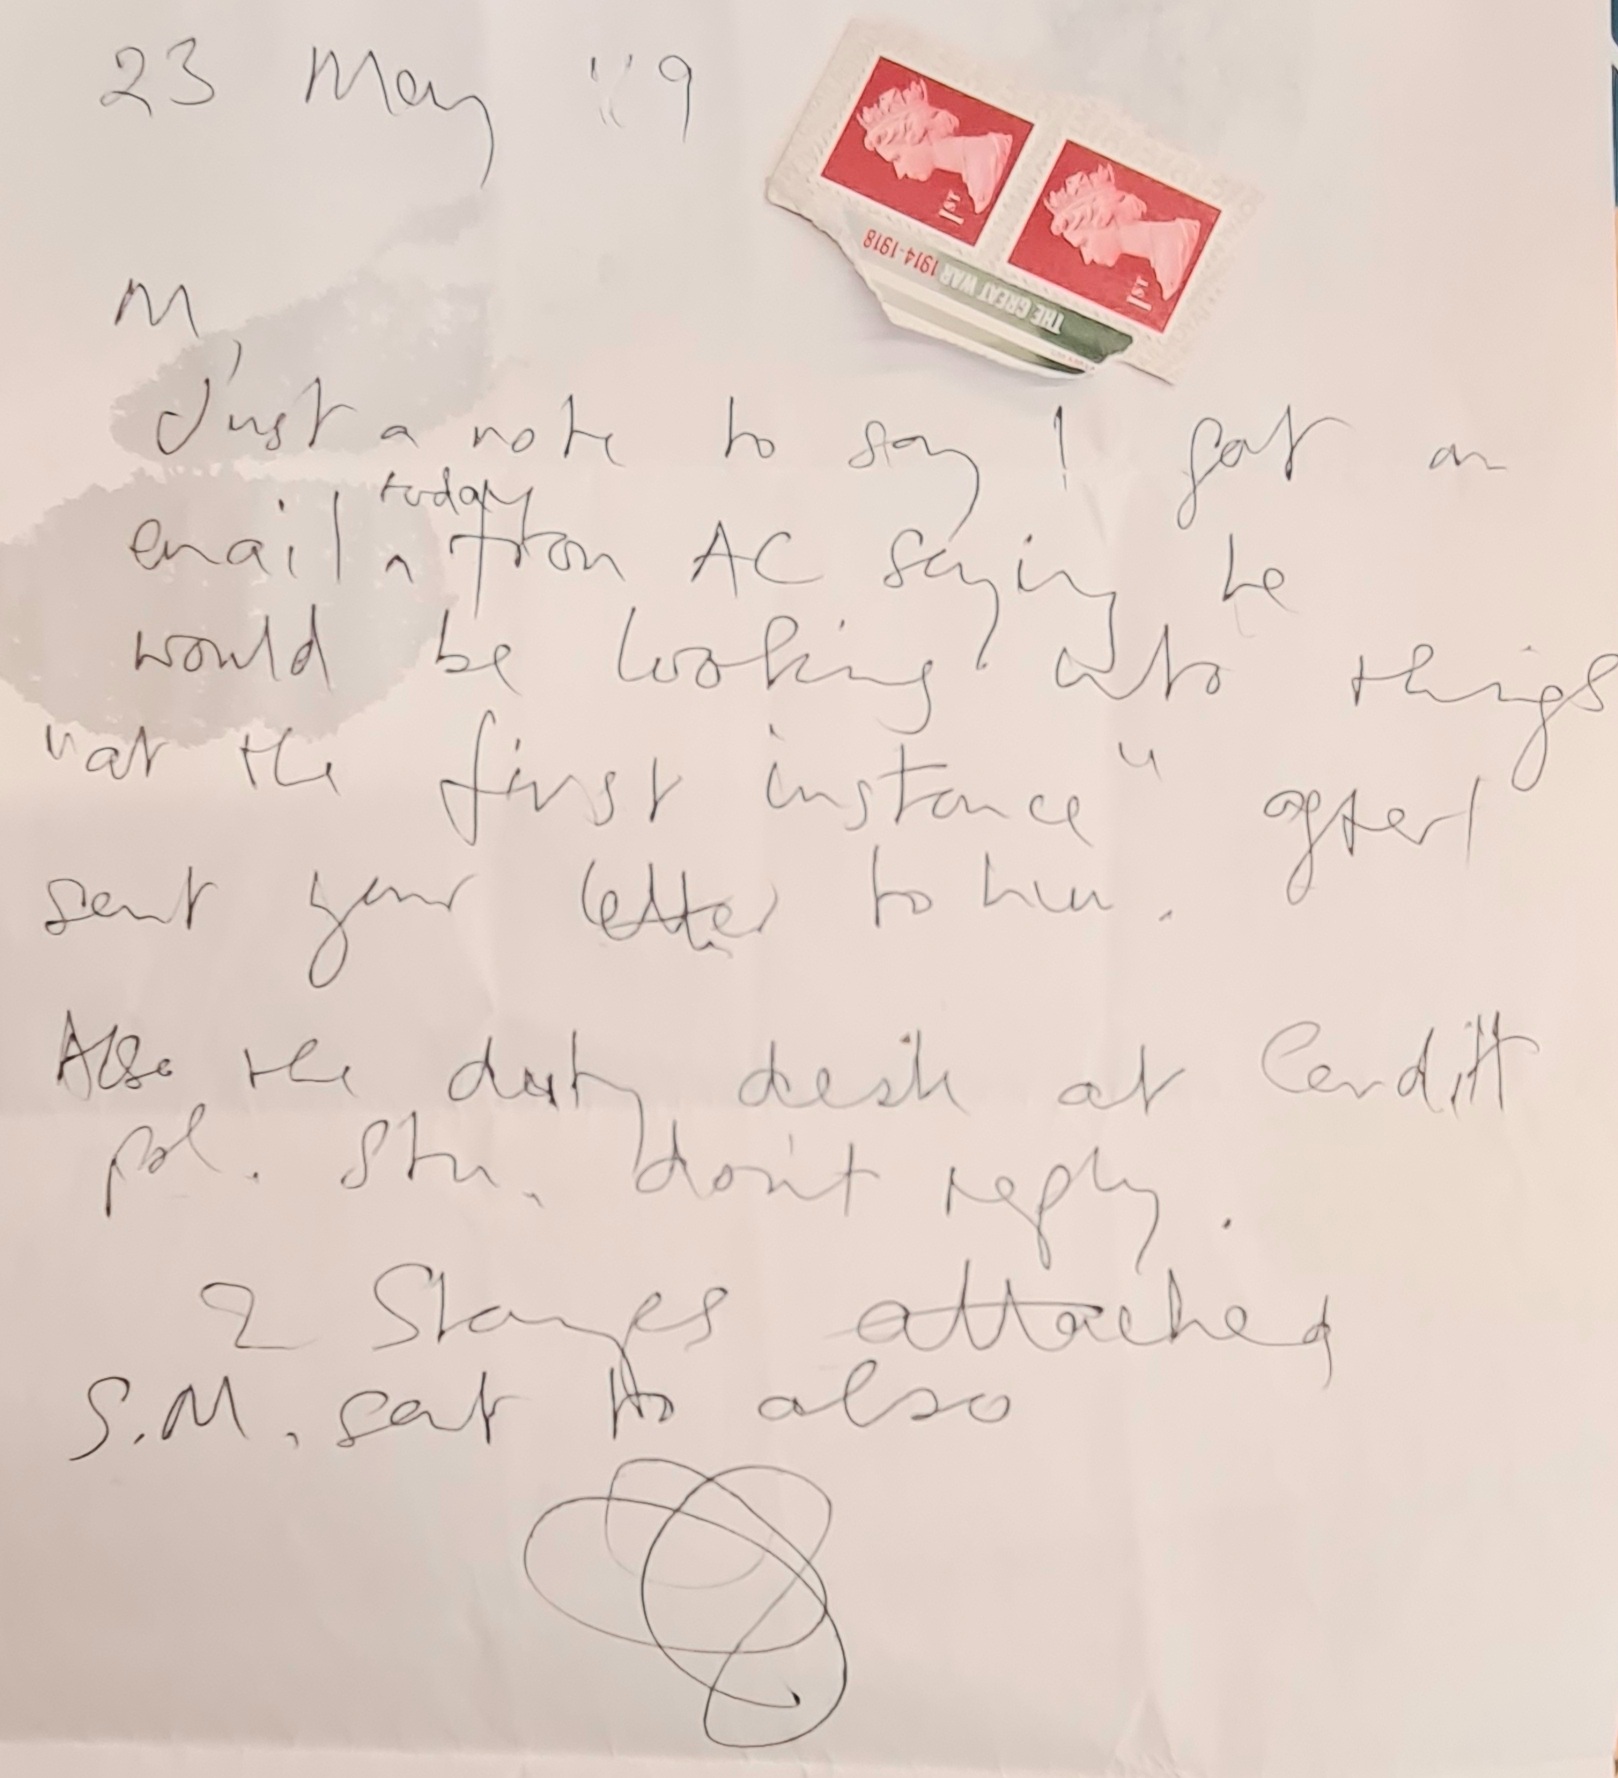 23 May 119
1ST
1ST
1914-1918
THE GREAT WAR
M,
Just a note to say I got an
today
email ^ from AC saying he
would be looking into things
"at the first instance" after I
sent your letter to him.
Also the duty desk at Cardiff
pol. stn. don't reply.
2 Stamps attached
S.M. sat to also